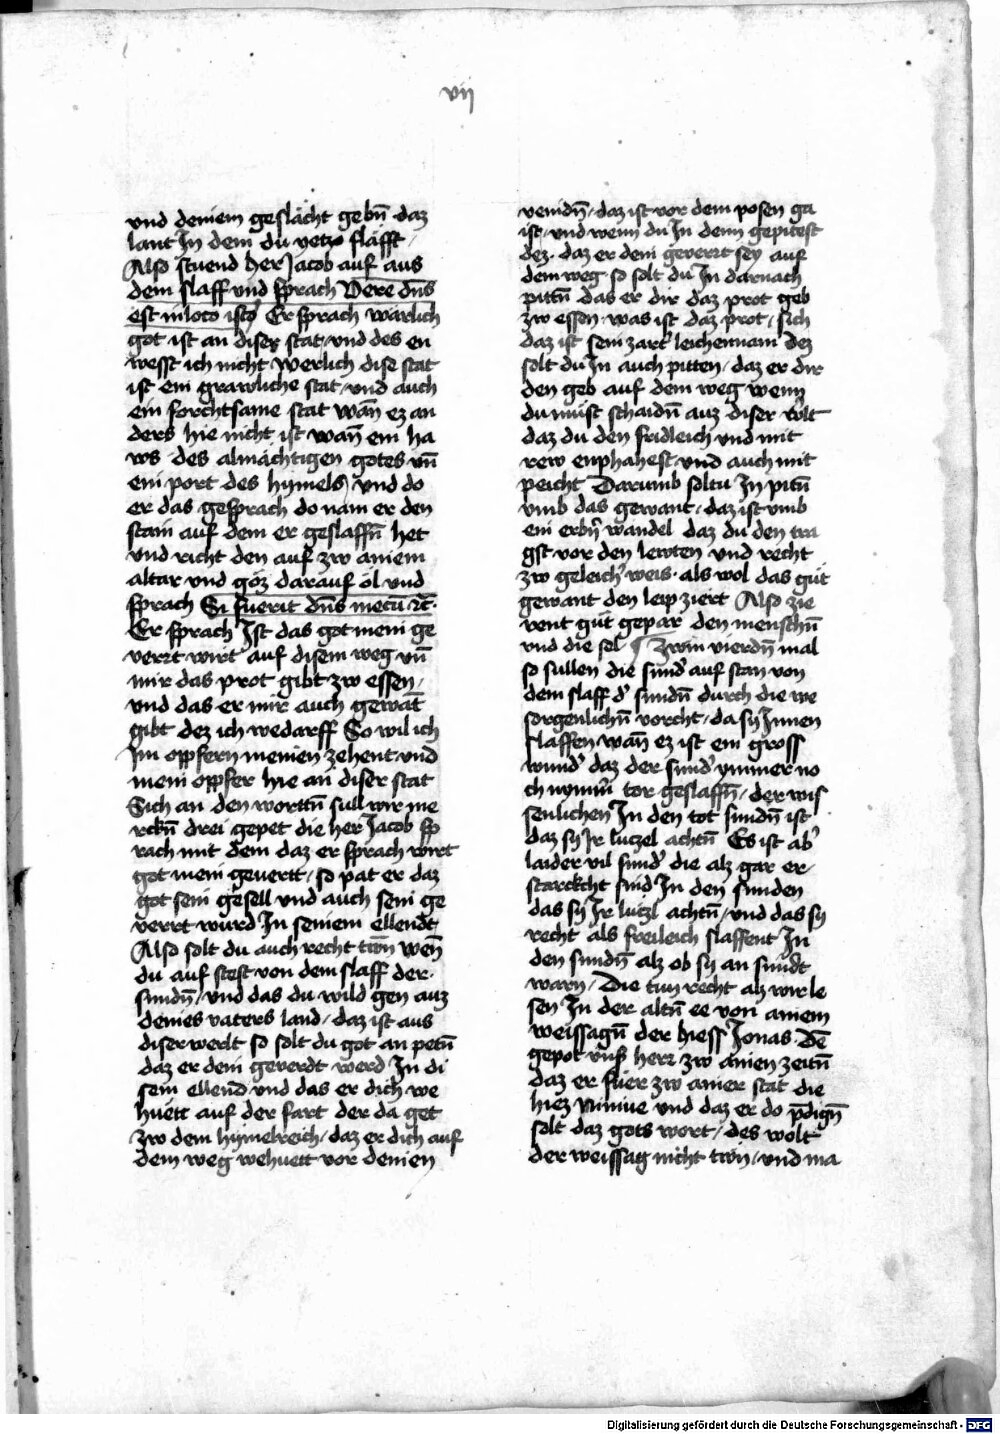 vij
und deniem geslächt gebn̄ daz
lant In dem du yetzo slaͤfft
Also stuend her Jacob auf aus
dem slaff und sprach Vere dn̄s
est in loco isto Er sprach warlich
got ist an diser stat und des en
wesst ich nicht werlich dise stat
ist ein grawliche stat und auch
ein forchtsame stat wan̄ ez an
ders hie nicht ist wan̄ ein ha
ws des almächtigen gotes vn̄
ein port des hymels und do
er das gesprach do nam er den
stain auf dem er geslaffn̄ het
und richt den auf zw ainem
altar und goz darauf öl und
sprach Si fuerit dn̄s mecū ꝛc̄
Er sprach Ist das got mein ge
verrt wirt auf disem weg vn̄
mir das prot gibt zw essen
und das er mir auch gewāt
gibt dez ich wedarff So wil ich
Im oppfern meinen zehent und
mein oppfer hie an diser stat
Sich an den worttn̄ sull wir me
rckn̄ drei gepet die her Jacob sp
rach mit dem daz er sprach wirt
got mein gevertt, so pat er daz
got sein gesell und auch sein ge
verrt wurd In seiniem ellendt
Also solt du auch recht twn̄ wen̄
du auf stest von dem slaff der
sundn̄, und das du wild gen auz
deines vaters land, daz ist aus
diser werlt so solt du got an petn̄
daz er dein geverdt werd In di
sem ellend und das er dich we
huett auf der fart der da get
zw dem hymelreich, daz er dich auf
dem weg wehuett vor deinen
veindn̄, daz ist vor dem posen ga
ist, und wenn du In denn gepitest
dez daz er dein geverrt sey auf
dem weg so solt du In darnach
pittn̄ das er dir daz prot geb
zw essen was ist daz prot, sich
daz ist sein zart leichennam dez
solt du In auch pitten, daz er dir
den geb auf dem weg wenn
du müst schaidn̄ auz diser wlt
daz du den fridleich und mit
rew enphahest und auch mit
peicht Darumb soltu In pitn̄
umb das gewant, daz ist umb
ein erbn̄ wandel daz du den tra
gst vor den lewten und recht
zw geleich' weis als wol das güt
gewant den leip ziert Also zie
rent güt gepär den menschn̄
und die sel ¶ Zwm vierdn̄ mal
so sullen die sund' auf stan von
dem slaff d' sundn̄ durch die we
sorgenlichn̄ vorcht, da sy Innen
slaffen wan̄ ez ist ein gross
wund' daz der sund' ymmer no
ch nymm̄ tor geslaffn̄, der wis
senlichen In den tot sundn̄ ist
daz sy Ir lutzel achtn̄ Es ist ab'
laider vil sund' die alz gar er
starckcht sind In den sunden
das sy Ir lutzl achtn̄, und das sy
recht als freileich slaffent In
den sundn̄ alz ob sy an sundt
warn, Die tun recht alz wir le
sen In der altn̄ ee von ainem
weissagn̄ der hiess Jonas dē
gepot unß herr zw ainen zeitn̄
daz er fuer zw ainer stat die
hiez Niniue und daz er do p̄dign̄
solt daz gots wort, des wolt
der weissag nicht twn, und ma
Digitalisierung gefördert durch die Deutsche Forschungsgemeinschaft - DFG